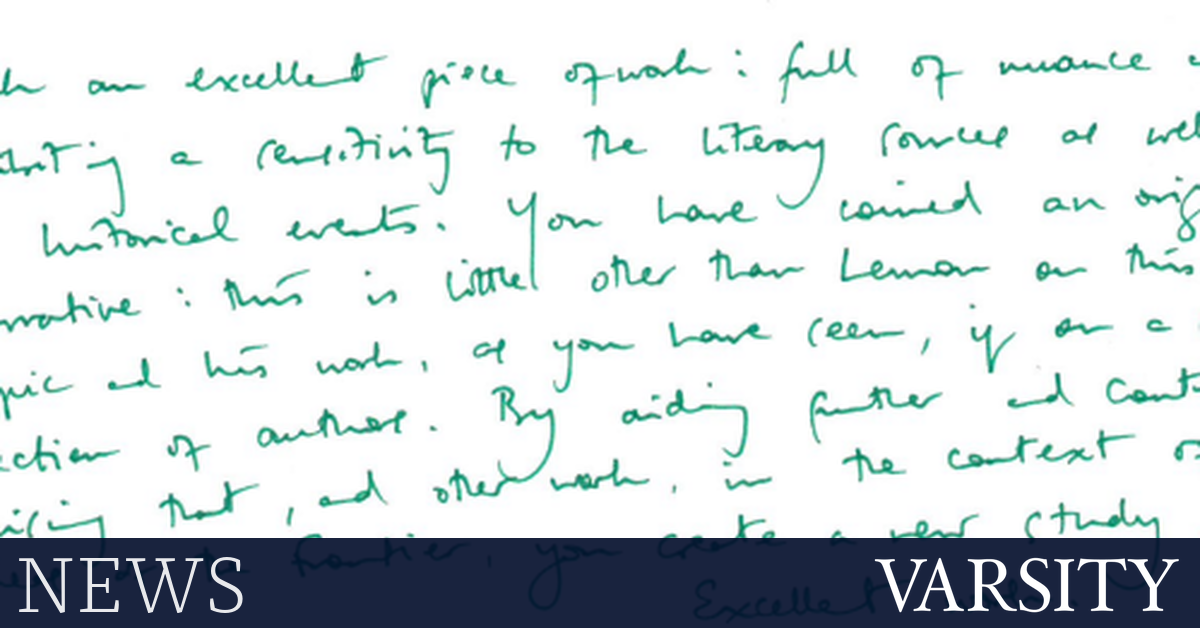 an excellent piece of work : full of nuance
a sensitivity to the literary sources as well
historical events. You have coined an orig
rrative : this is little other than Lemon on this
pic and his work, as you have seen, is on a
ection of authors. By aiding further and cont
ising that, and other work, in the context of
frontier, you create a new study
Excellent
NEWS
VARSITY